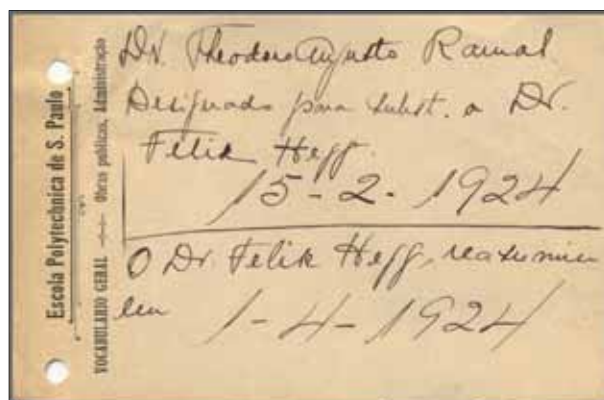 Escola Polytechnica de S. Paulo
VOCABULARIO GERAL — Obras publicas, Administração
Dr. Theodoro Augusto Ramal
Designado para subst. o Dr.
Felix Heff.
15-2-1924
O Dr. Felix Heff, reassumiu
em 1-4-1924